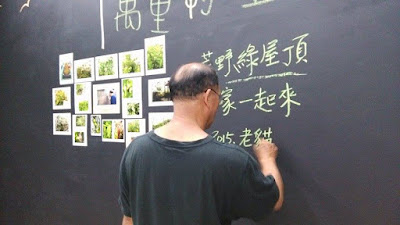 萬里的
荒野綠屋頂
家一起來
2015.老貓